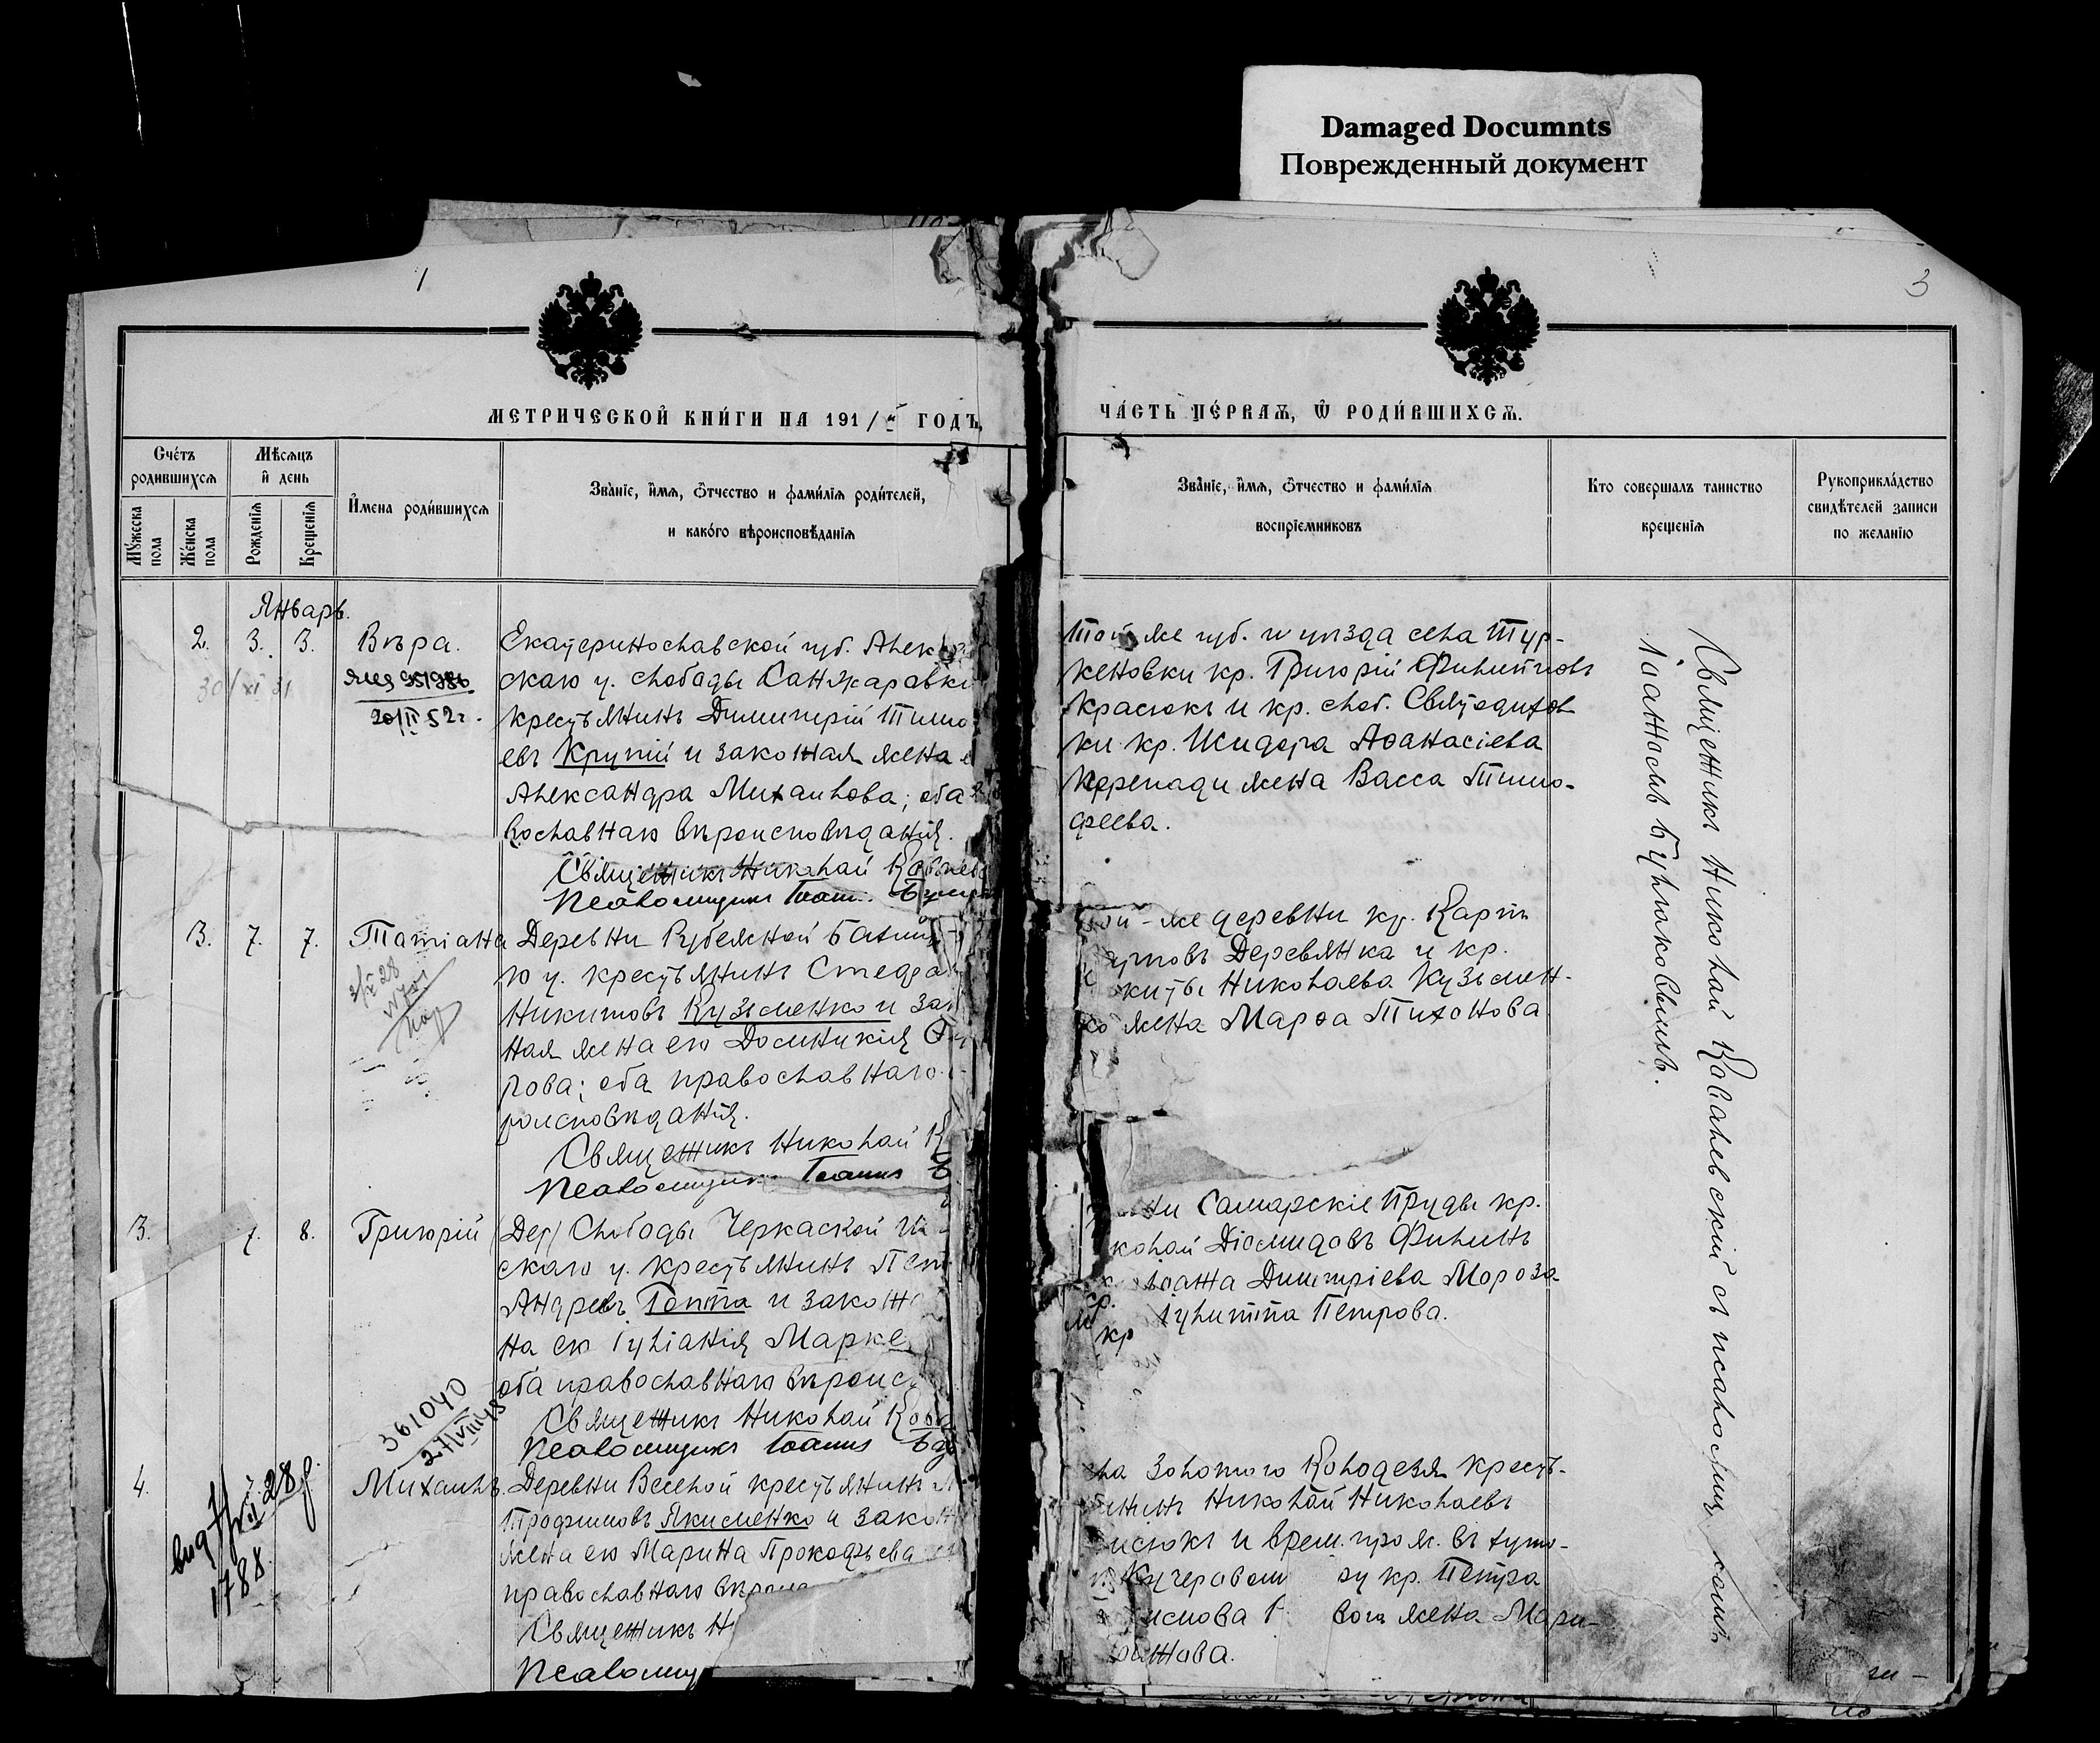 Damaged Documnts
Поврежденный документ
1
3
МЕТРИЧЕСКОЙ КНИГИ НА 191/ ГОДЪ,
ЧАСТЬ ПЕРВАЯ, Ѿ РОДИВШИХСЯ.
Счетъ родившихся
Мѣсяцъ и день
Мужеска пола
Женска пола
Рожденія
Крещенія
Имена родившихся
Званіе, имя, отчество и фамилія родителей,
и какого вѣроисповѣданія
Званіе, имя, отчество и фамилія
воспріемниковъ
Кто совершалъ таинство
крещенія
Рукоприкладство
свидѣтелей записи
по желанію
Январь.
2. 3. 3. Вѣра.
30/XI 31
20/II 52г.
Екатеринославской губ. Алекс
скаго у. слободы Санжаравки
крестьянинъ Димитрій Тимо
евъ Крупій и законная жена е
Александра Михаилова; оба
вославнаго вѣроисповѣданія.
Священникъ Николай Ковалев
Псаломщикъ Іоан.
Той же губ. и уѣзда села Тур-
кеновки кр. Григорій Филипповъ
Красюкъ и кр. слоб. Святодухов
ки кр. Исидора Аѳанасіева
жена Васса Тимо-
феева.
3. 7. 7. Татіана
Деревни Рубежной Бахмут
го у. крестьянинъ Стефан
Никитовъ Кузьменко и зак
ная жена его Домникія
рова; оба православнаго
роисповѣданія.
Священникъ Николай К
Псаломщикъ Іоаннъ Б
ой-же деревни кр. Карпъ
Деревянка и кр.
киты Николаева Кузьмен-
ко жена Марѳа Тихонова
3. 7. 8. Григорій
Дер/ Слободы Черкаской
скаго у. крестьянинъ Пет
Андреевъ Гоппа и законн
на его Іуліанія Марке
оба православнаго вѣроис
Священникъ Николай Кова
Псаломщикъ Іоаннъ Б
ни Самарскіе Пруды кр.
колай Діомидовъ Филинъ
Іоанна Димитріева Мороза
кр Іулитта Петрова.
361040
27/VIII 48
4. Михаилъ.
28 г.
1788
Деревни Веселой крестьянинъ
Трофимовъ Якименко и закон
жена его Марина Прокофьева
православнаго вѣроис
Священникъ Н
Псаломщ
ла Золотого Колодезя кресть-
янинъ Николай Николаевъ
и врем. прож. въ хуто-
Кучеровом ру кр. Петра
вога жена Мари-
Священникъ Николай Ковалевскій съ псаломщикомъ
Іоанномъ Бульюковымъ.